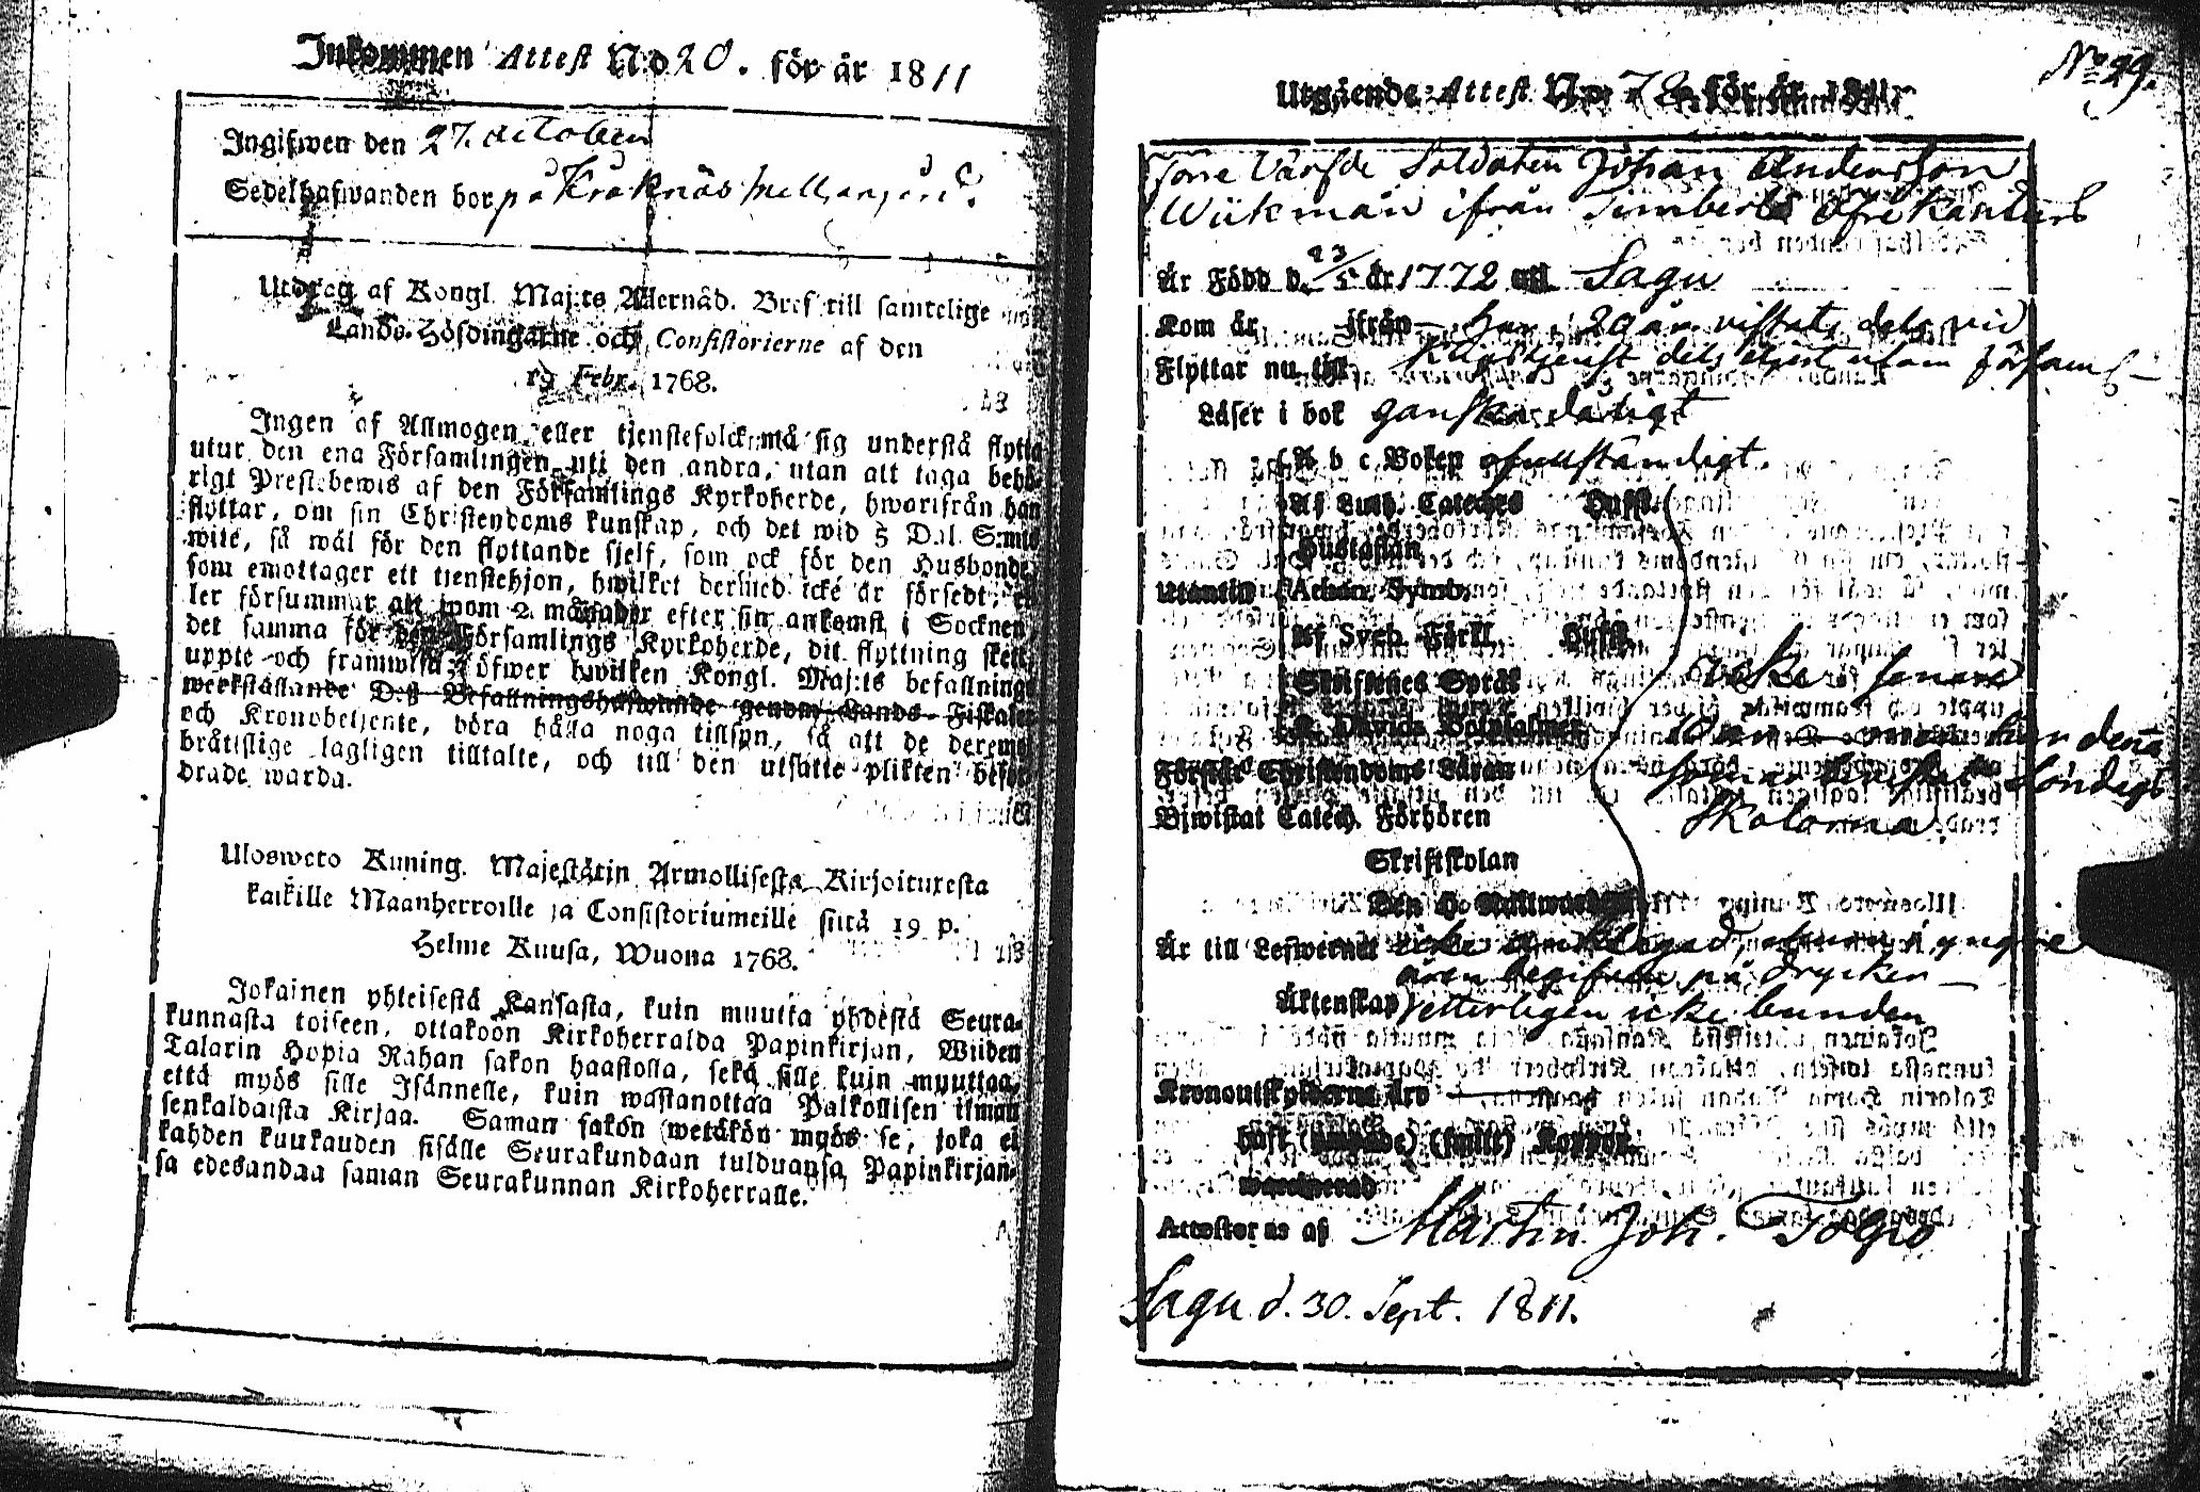 Inkommen Attest No 20. för år 1811
Ingifwen den 27. october
Sedelhafwanden bor på Kråknäs
Utdrag af Kongl. Maj:ts Allernåd. Bref till samtelige
Lands-Höfdingarne och Consistorierne af den
19 Febr. 1768.
Ingen af Allmogen eller tjenstefolck må sig understå flytta
utur den ena Församlingen uti den andra, utan att taga behö-
rigt Prestebewis af den Församlings Kyrkoherde, hwarifrån han
flyttar, om sin Christendoms kunskap, och det wid 5 Dal. S:mts
wite, så wäl för den flyttande sjelf, som ock för den Husbonde,
som emottager ett tjenstehjon, hwilket dermed icke är försedt, el-
ler försummar att inom 2 månader efter sin ankomst i Socknen
det samma för den Församlings Kyrkoherde, dit flyttning skett,
uppte och framwisa; öfwer hwilken Kongl. Maj:ts befallnings
werkställande Deß Befallningshafwande genom Lands-Fiskaler
och Kronobetjente, böra hålla noga tillsyn, så att de deremot
bråttslige lagligen tilltalte, och till den utsatte plikten befor-
drade warda.
Ulosweto Kuning. Majestätin Armollisesta Kirjoituxesta
kaikille Maanherroille ja Consistoriumeille siitä 19 p.
Helme Kuusa, Wuona 1768.
Jokainen yhteisestä Kansasta, kuin muutta yhdestä Seura-
kunnasta toiseen, ottakoon Kirkoherralda Papinkirjan, Wiiden
Talarin Hopia Rahan sakon haastolla, sekä sille kuin muuttaa,
että myös sille Isännelle, kuin wastanottaa Palkollisen ilman
senkaldaista Kirjaa. Saman sakon wetäkön myös se, joka ei
kahden kuukauden sisälle Seurakundaan tulduansa Papinkirjan-
sa edesandaa saman Seurakunnan Kirkoherralle.
No 29.
Utgående Attest No 72 för år 1811
Förre Värfde Soldaten Johan Andersson
Wiikman ifrån Timberla Öfre
Är Född d. 23/5 år 1772 uti Sagu
Kom år ifrån har i 20 år vistats dels vid
Flyttar nu till Krigstjenst dels eljest utom församl-
Läser i bok ganska dåligt
A b c Boken ofullständigt.
Af Luth. Cateches Hufst.
Hustaflan
Utantill Athan. Symb.
Af Sveb. Förkl. Hufst.
Skriftenes Språk icke senare
K. Davids Botpsalmer åren har denna
Förstår Christendoms Läran Söndags
Bjwistat Catech. Förhören Skolorna
Skriftskolan
Den H. Nattwarden
Är till Lefwernet icke anklagad, utom i yngre
åren begifven på drycken
Äktenskap vetterligen icke bunden
Kronoutskylderne åro
haft (ympade) (smitt) Koppor
waccinerad
Attesteras af Martin Joh. Tolpo
Sagu d. 30. Sept. 1811.